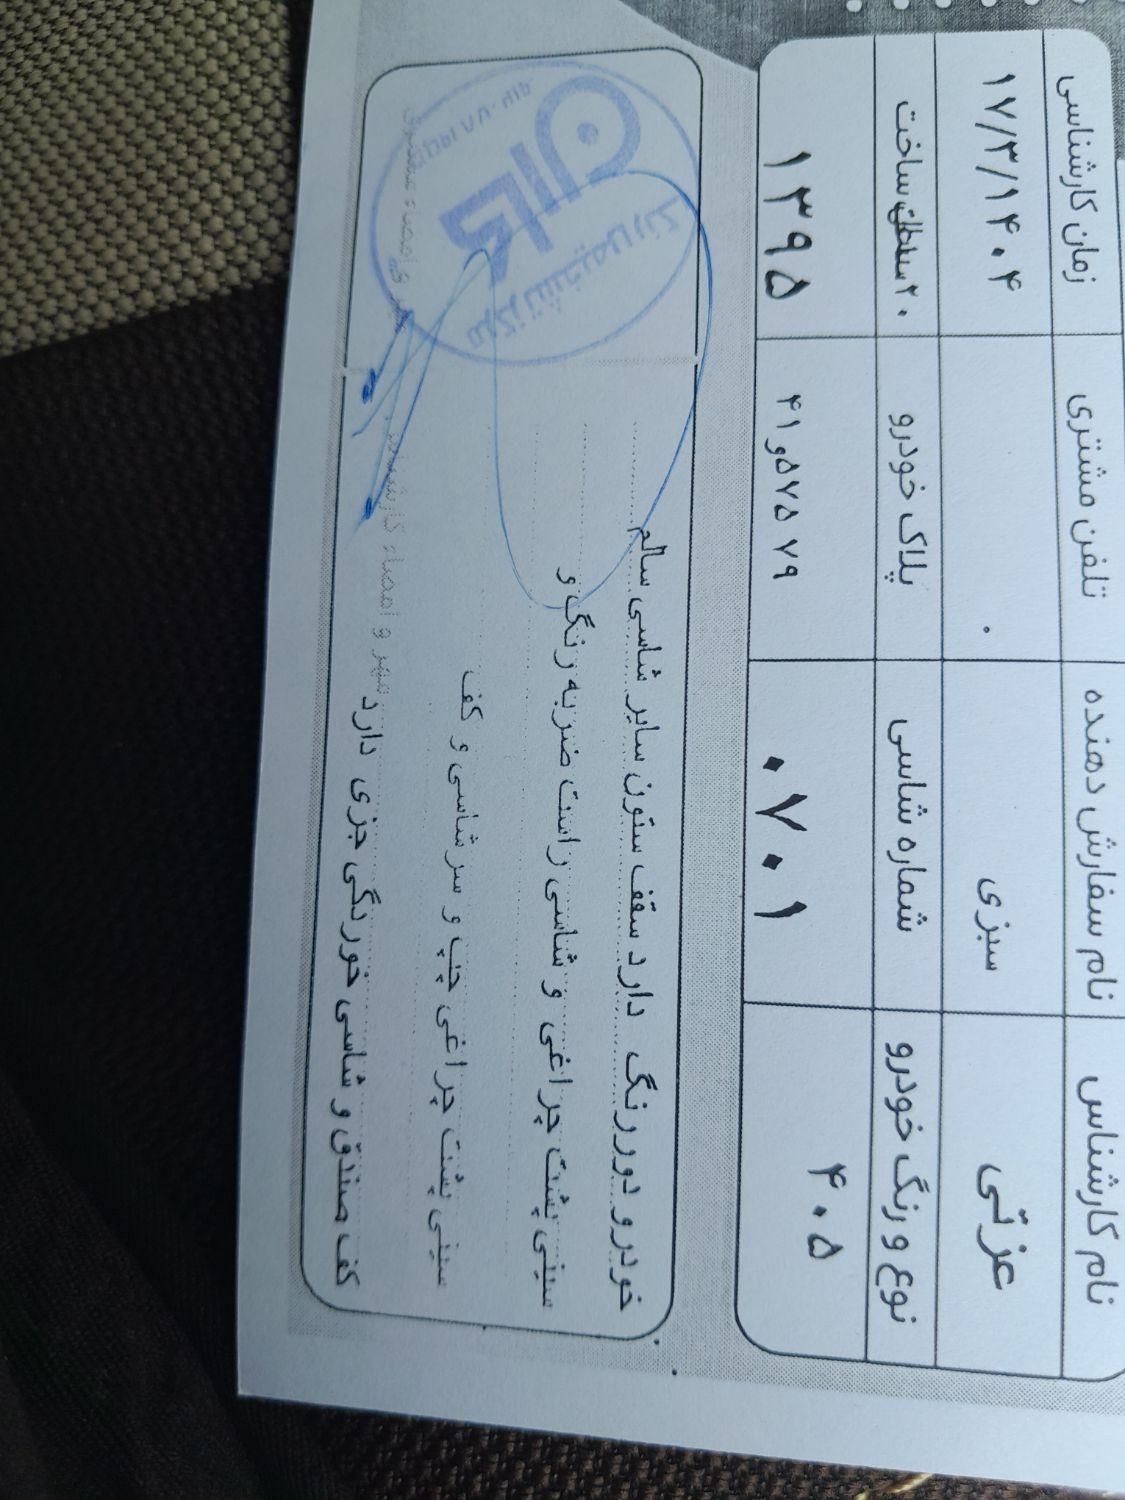 نام کارشناس نام سفارش دهنده تلفن مشتری زمان کارشناسی
عزتی سبزی ۰ ۱۷/۳/۱۴۰۴
نوع و رنگ خودرو شماره شاسی پلاک خودرو ساخت
۴۰۵ ۰۷۰۱ ۴۱و۵۷۵۷۹ ۱۳۹۵
خودرو دور رنگ دارد سقف ستون سایر شاسی سالم
سینی پشت چراغی و شاسی راست ضربه رنگ و
سینی پشت چراغی چپ و سرشاسی و کف
کف صندق و شاسی خوردگی جزی دارد
مهر و امضاء کارشناس
مرکز تشخیص رنگ
کاران